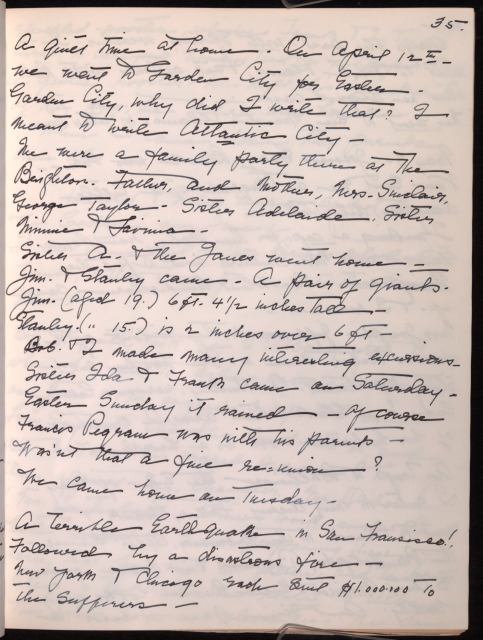 35.
A quiet time at home. On April 12th -
we went to Garden City for Easter -
Garden City, why did I write that? I
meant to write Atlantic City -
We were a family party there at The
Brighton. Father, and Mother, Mrs. Sinclair,
George Taylor - Sister Adelaide, Sister
Minnie & Lavinia -
Sister A. & the Janes went home -
Jim. & Stanley came - A pair of giants -
Jim. (aged 19.) 6 ft. 4 1/2 inches tall -
Stanley. (" 15) is 2 inches over 6 ft -
Bob. & I made many interesting excursions -
Sister Ida & Frank came on Saturday -
Easter Sunday it rained - of course
Francis Pegram was with his parents -
Wasn't that a fine re=union?
We came home on Tuesday -
A terrible Earthquake in San Francisco!
Followed by a disastrous fire -
New York & Chicago each send $1.000.000 to
the sufferers -